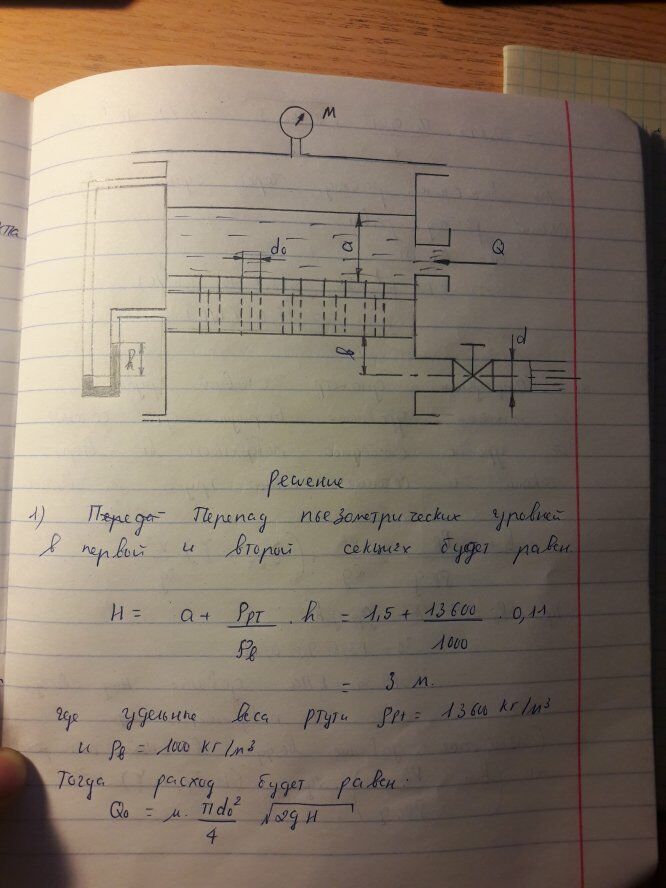 M
a
d₀
Q
h
в
d
Решение
1) Передат Перепад пьезометрических уровней
в первой и второй секциях будет равен
H = a + ρрт/ρв · h = 1,5 + 13600/1000 · 0,11
= 3 м.
где удельные веса ртути ρрт = 13600 кг/м³
и ρв = 1000 кг/м³
Тогда расход будет равен.
Q₀ = μ · πd₀²/4 √2gH